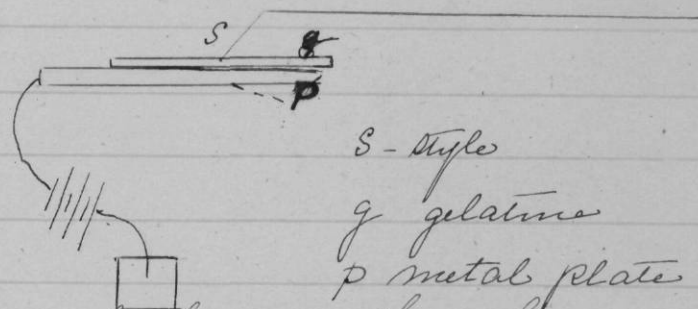 S
g
p
S - style
g gelatine
p metal plate